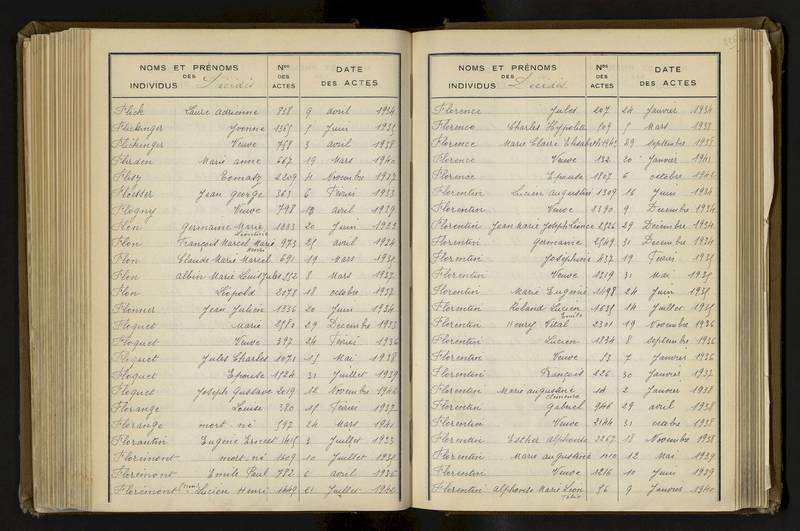 NOMS ET PRÉNOMS
DES
INDIVIDUS Décédés
Nos
DES
ACTES
DATE
DES ACTES
Flick Laure Adrienne 858 9 avril 1934
Flickinger Yvonne 1365 5 Juin 1935
Flickinger Veuve 758 3 avril 1938
Marie anne 667 19 Mars 1940
2209 4 Novembre 1937
Jean george 363 6 Février 1933
Flogny Veuve 798 13 avril 1939
Flon germaine Marie 1383 20 Juin 1933
Léontine
Flon François Marcel Marie 973 25 avril 1934
Henri
Flon Claude Marie Marcel 691 19 Mars 1935
Flon Albin Marie Louis Jules 552 8 Mars 1937
Flon Léopold 2078 18 octobre 1937
Flonner Jean Julien 1336 20 Juin 1934
Floquet Marie 2580 29 Decembre 1933
Floquet Veuve 397 24 Février 1936
Floquet Jules Charles 1073 15 Mai 1938
Floquet Epouse 1524 31 Juillet 1939
Floquet Joseph Gustave 2019 12 Novembre 1942
Florange Louise 380 15 Février 1937
Florange mort né 597 24 Mars 1941
Florantin Eugène Ernest 1415 3 Juillet 1933
Florémont mort né 1609 10 Juillet 1935
Florémont Emile Paul 782 6 avril 1936
Florémont Lucien Henri 1449 21 Juillet 1940
NOMS ET PRÉNOMS
DES
INDIVIDUS Décédés
Nos
DES
ACTES
DATE
DES ACTES
Florence Jules 207 24 Janvier 1934
Florence Charles Hippolite 509 5 Mars 1938
Florence Marie Claire Elisabeth 1963 29 septembre 1938
Florence Veuve 132 20 Janvier 1941
Florence Epouse 1807 6 octobre 1942
Florentin Lucien augustin 1309 16 Juin 1934
Florentin Veuve 2390 9 Decembre 1934
Florentin Jean Marie Joseph 2526 29 Decembre 1934
Florentin germaine 2549 31 Decembre 1934
Florentin Joséphine 437 19 Février 1935
Florentin Veuve 1219 31 Mai 1935
Florentin Marie Eugénie 1498 24 Juin 1935
Florentin Lucien 1635 14 Juillet 1935
Emile
Florentin Henry Vital 2301 19 Novembre 1936
Florentin Lucien 1834 8 septembre 1936
Florentin Veuve 53 7 Janvier 1936
Florentin François 226 30 Janvier 1937
Florentin Marie augustine 18 2 Janvier 1938
Clémence
Florentin Gabriel 946 29 avril 1938
Florentin Veuve 2144 31 octobre 1938
Florentin Esther alphonse 2267 18 Novembre 1938
Florentin Marie augustine 1110 12 Mai 1939
Florentin Veuve 1216 10 Juin 1939
Florentin alphonse Marie Léon 56 9 Janvier 1940